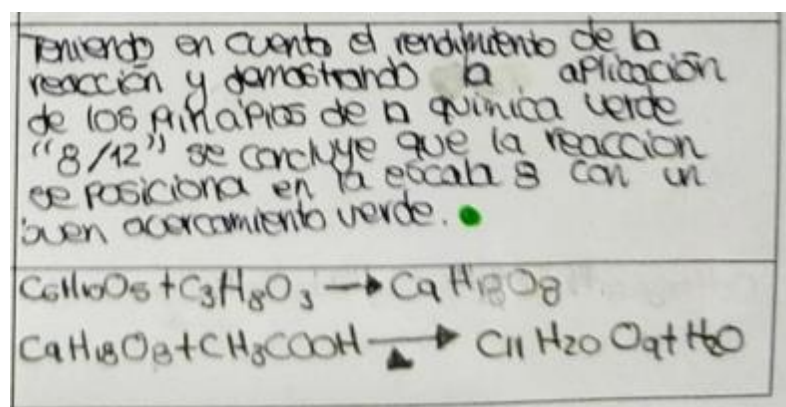 Teniendo en cuenta el rendimiento de la
reacción y demostrando la aplicación
de los principios de la química verde
"8/12" se concluye que la reaccion
se posiciona en la escala 8 con un
buen acercamiento verde.
C6H10O5 + C3H8O3 → C9H18O8
C9H18O8 + CH3COOH → C11H20O9 + H2O
▲